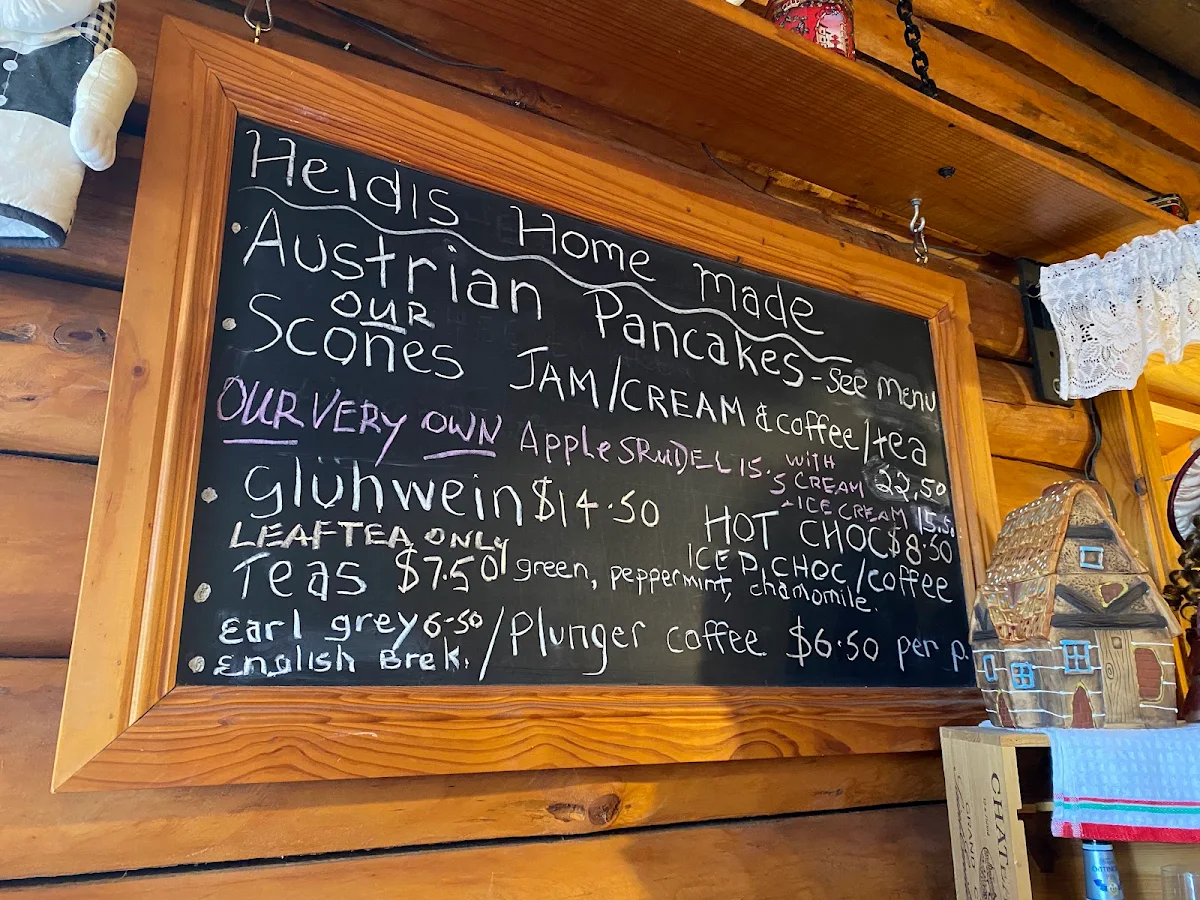 Heidis Home made
Austrian Pancakes - See menu
OUR
Scones JAM/CREAM & coffee/tea
22,50
OUR VERY OWN Apple SRUDEL 15.
WITH
CREAM
- ICE CREAM 15.5.
Glühwein $14.50
HOT CHOC $8.50
LEAF TEA ONLY
ICE D CHOC/coffee
Teas $7.50 green, peppermint, chamomile.
Earl grey 6-50 / Plunger coffee $6.50 per p.
English Brek.
CHATE
GRAND